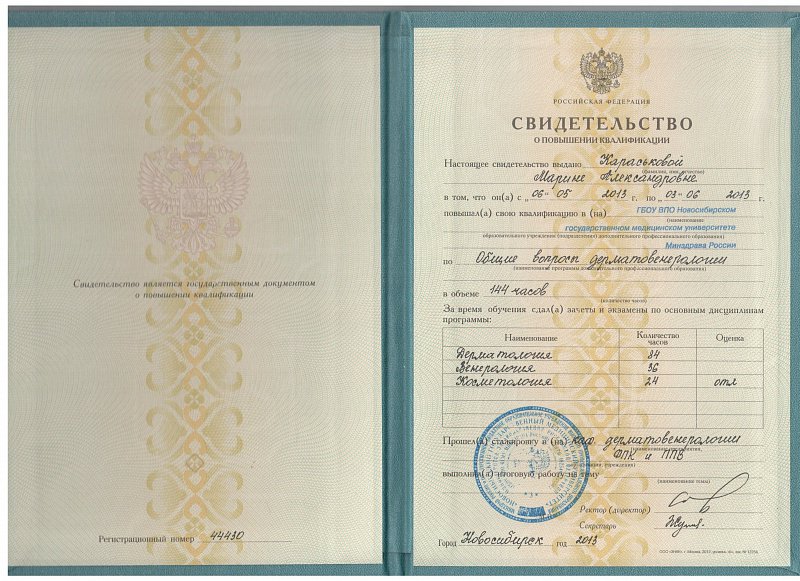 Свидетельство является государственным документом
о повышении квалификации
Регистрационный номер 44430
РОССИЙСКАЯ ФЕДЕРАЦИЯ
СВИДЕТЕЛЬСТВО
О ПОВЫШЕНИИ КВАЛИФИКАЦИИ
Настоящее свидетельство выдано Караськовой
(фамилия, имя, отчество)
Марине Александровне
в том, что он(а) с „06" 05 2013 г. по „03" 06 2013 г.
повышал(а) свою квалификацию в (на) ГБОУ ВПО Новосибирском
(наименование)
государственном медицинском университете
образовательного учреждения (подразделения) дополнительного профессионального образования)
Минздрава России
по Общие вопросы дерматовенерологии
(наименование программы дополнительного профессионального образования)
в объеме 144 часов
(количество часов)
За время обучения сдал(а) зачеты и экзамены по основным дисциплинам
программы:
Наименование Количество часов Оценка
Дерматология 84
Венерология 36
Косметология 24 отл
Прошел(а) стажировку в (на) каф. дерматовенерологии
ФПК и ППВ
выполнил(а) итоговую работу на тему
(наименование темы)
Ректор (директор)
Секретарь
Город Новосибирск год 2013